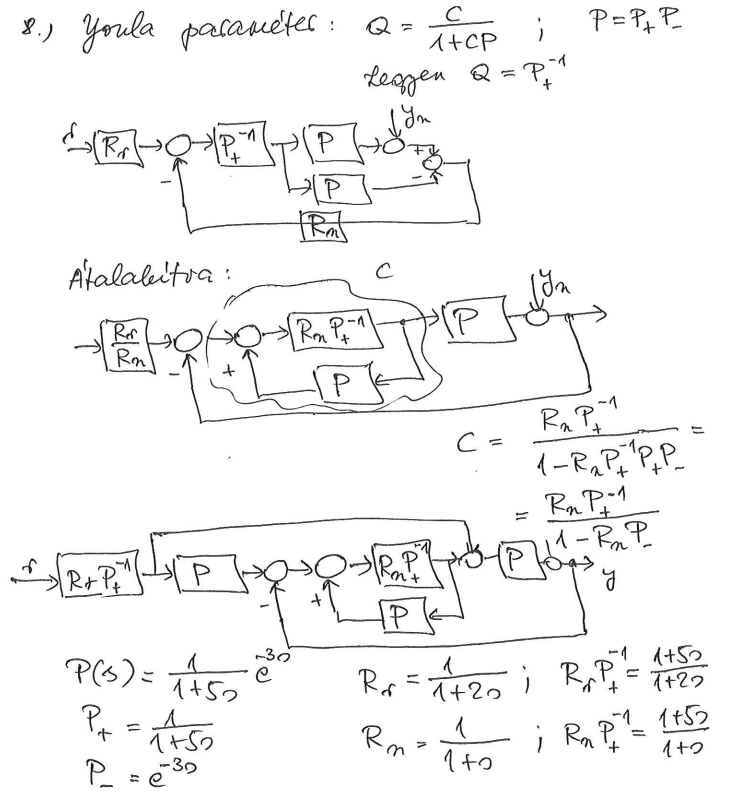 8.) Youla paraméter: Q = C / (1+CP) ; P = P₊P₋
Legyen Q = P₊⁻¹
r Rᵣ - P₊⁻¹ P yₙ + -
P
Rₙ
Átalakítva: C
Rᵣ / Rₙ - + RₙP₊⁻¹ P yₙ
P
C = RₙP₊⁻¹ / (1-RₙP₊⁻¹P₊P₋) =
= RₙP₊⁻¹ / (1-RₙP₋)
r RᵣP₊⁻¹ P - + RₙP₊⁻¹ P y
P
P(s) = 1 / (1+5s) e⁻³ˢ
P₊ = 1 / (1+5s)
P₋ = e⁻³ˢ
Rᵣ = 1 / (1+2s) ; RᵣP₊⁻¹ = (1+5s) / (1+2s)
Rₙ = 1 / (1+s) ; RₙP₊⁻¹ = (1+5s) / (1+s)